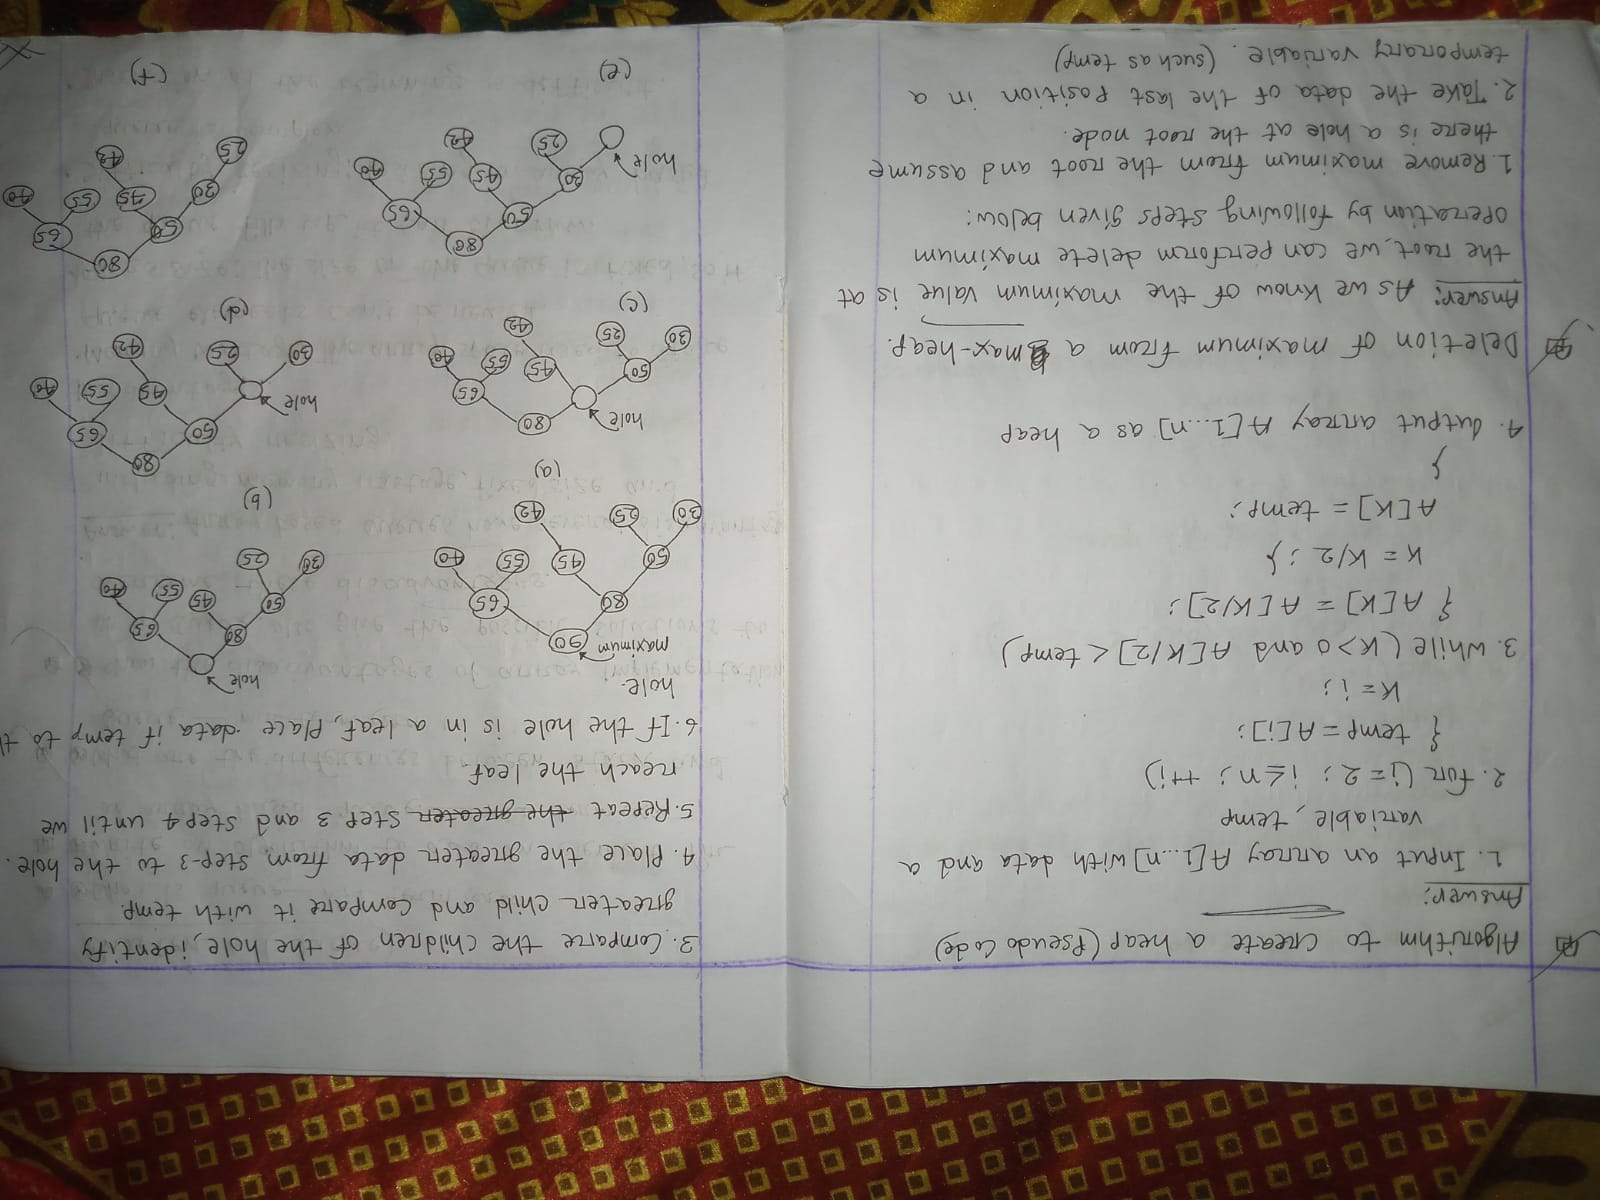 Algorithm to create a heap (Pseudo Code)
Answer:
1. Input an array A[1...n] with data and a
variable, temp
2. for (i = 2; i ≤ n; ++i)
{ temp = A[i];
K = i;
3. while (K>0 and A[K/2] < temp)
{ A[K] = A[K/2];
K = K/2 ; }
A[K] = temp;
}
4. Output array A[1...n] as a heap
Deletion of maximum from a max-heap.
Answer: As we know of the maximum value is at
the root, we can perform delete maximum
operation by following steps given below:
1. Remove maximum from the root and assume
there is a hole at the root node.
2. Take the data of the last position in a
temporary variable. (such as temp)
3. Compare the children of the hole, identify
greater child and compare it with temp.
4. Place the greater data from step-3 to the hole.
5. Repeat the greater step 3 and step 4 until we
reach the leaf.
6. If the hole is in a leaf, place data if temp to
hole.
maximum 90
80 65
50 45 55 40
30 25 42
(a)
hole
80 65
50 45 55 40
30 25
(b)
hole 80
65
50 45 55 40
30 25 42
(c)
80
50 65
hole 45 55 40
30 25 42
(d)
80
50 65
30 45 55 40
hole 25 42
(e)
80
50 65
30 45 55 40
25 42
(f)